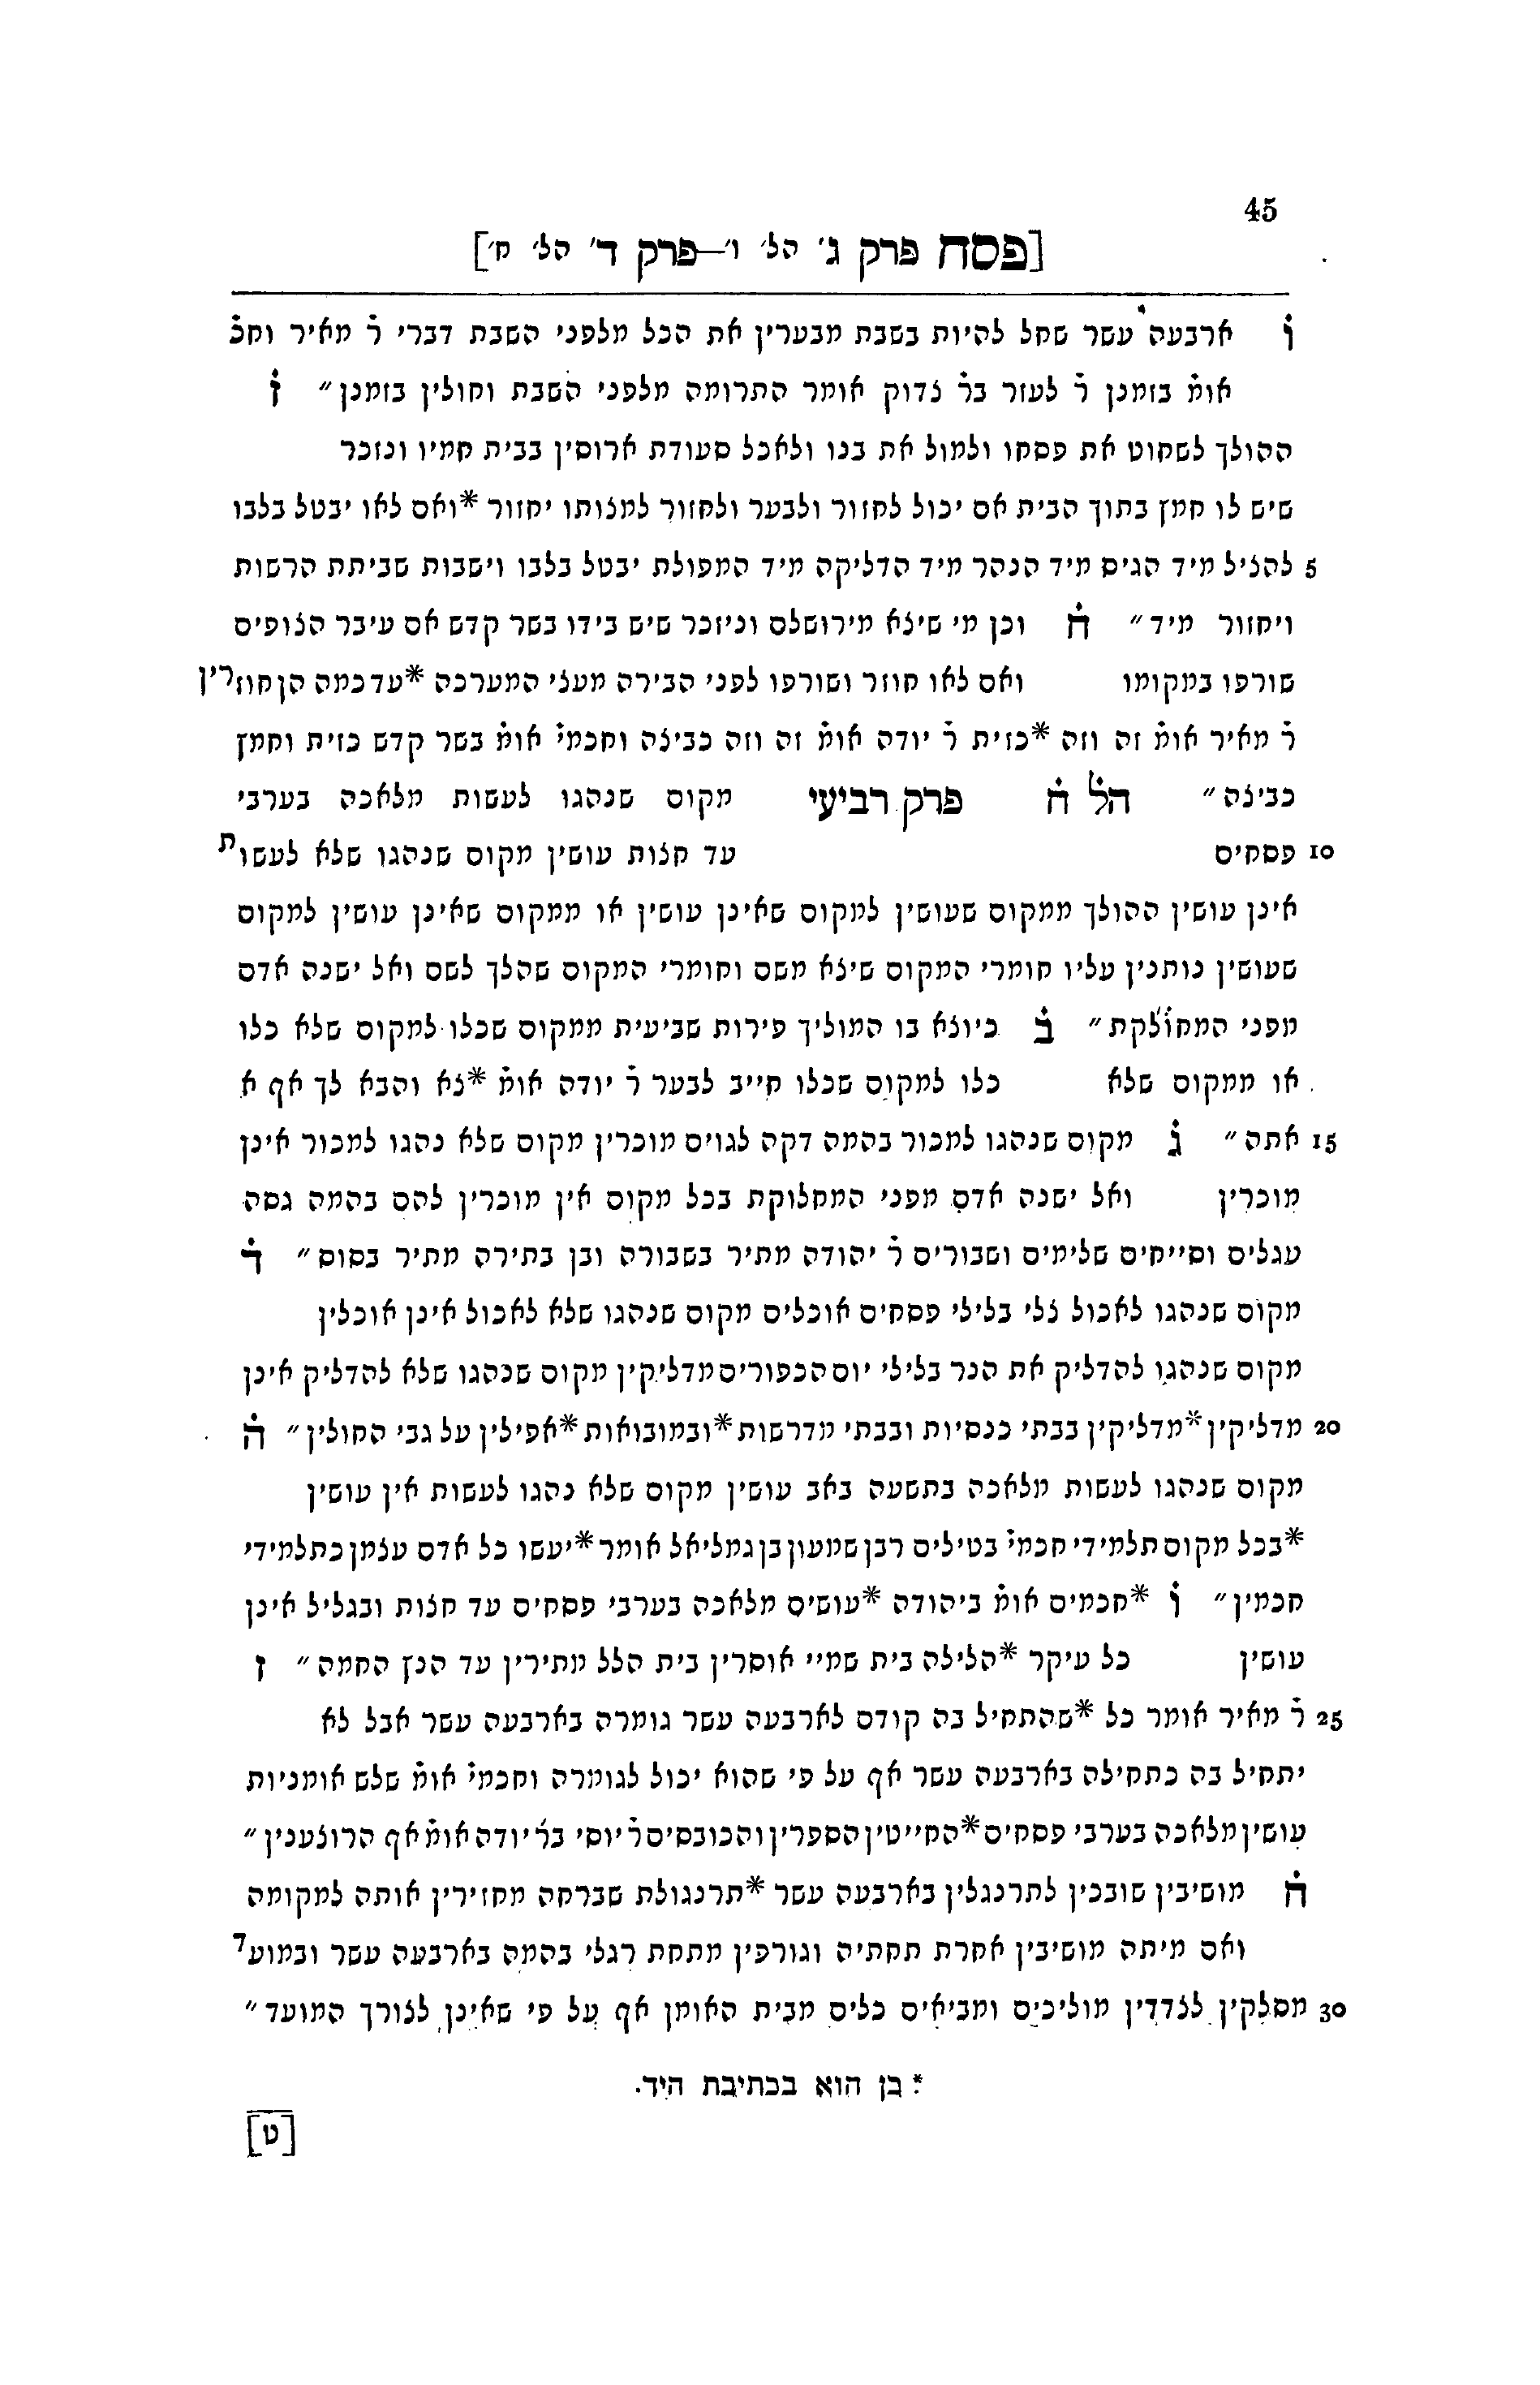 45
[פסח פרק ג' הל' ו'—פרק ד' הל' ח']
ו̇ ארבעה עשר שחל להיות בשבת מבערין את הכל מלפני השבת דברי ר̇ מאיר וחכ̇
אומ̇ בזמנן ר̇ לעזר בר̇ צדוק אומר התרומה מלפני השבת וחולין בזמנן״ ז̇
ההולך לשחוט את פסחו ולמול את בנו ולאכל סעודת ארוסין בבית חמיו ונזכר
שיש לו חמץ בתוך הבית אם יכול לחזור ולבער ולחזור למצותו יחזור *ואם לאו יבטל בלבו
5 להציל מיד הגיס מיד הנהר מיד הדליקה מיד המפולת יבטל בלבו וישבות שביתת הרשות
ויחזור מיד״ ח̇ וכן מי שיצא מירושלם וניזכר שיש בידו בשר קדש אם עיבר הצופים
שורפו במקומו ואם לאו חוזר ושורפו לפני הבירה מעצי המערכה *עד כמה הן חוזרין
ר̇ מאיר אומ̇ זה וזה *כזית ר̇ יודה אומ̇ זה וזה כביצה וחכמי̇ אומ̇ בשר קדש כזית וחמץ
כביצה״ הל̇ ח̇ פרק רביעי מקום שנהגו לעשות מלאכה בערבי
10 פסחים עד חצות עושין מקום שנהגו שלא לעשות
אינן עושין ההולך ממקום שעושין למקום שאינן עושין או ממקום שאינן עושין למקום
שעושין נותנין עליו חומרי המקום שיצא משם וחומרי המקום שהלך לשם ואל ישנה אדם
מפני המחולקת״ ב̇ כיוצא בו המוליך פירות שביעית ממקום שכלו למקום שלא כלו
או ממקום שלא כלו למקום שכלו חייב לבער ר̇ יודה אומ̇ *צא והבא לך אף א
15 אתה״ ג̇ מקום שנהגו למכור בהמה דקה לגוים מוכרין מקום שלא נהגו למכור אינן
מוכרין ואל ישנה אדם מפני המחלוקת בכל מקום אין מוכרין להם בהמה גסה
עגלים וסייחים שלימים ושבורים ר̇ יהודה מתיר בשבורה ובן בתירה מתיר בסוס״ ד̇
מקום שנהגו לאכול צלי בלילי פסחים אוכלים מקום שנהגו שלא לאכול אינן אוכלין
מקום שנהגו להדליק את הנר בלילי יום הכפורים מדליקין מקום שנהגו שלא להדליק אינן
20 מדליקין *מדליקין בבתי כנסיות ובבתי מדרשות *ובמובואות *אפילין על גבי החולין״ ה̇
מקום שנהגו לעשות מלאכה בתשעה באב עושין מקום שלא נהגו לעשות אין עושין
*בכל מקום תלמידי חכמי̇ בטילים רבן שמעון בן גמליאל אומר *יעשו כל אדם עצמן כתלמידי
חכמין״ ו̇ *חכמים אומ̇ ביהודה *עושים מלאכה בערבי פסחים עד חצות ובגליל אינן
עושין כל עיקר *הלילה בית שמיי אוסרין בית הלל מתירין עד הנץ החמה״ ז
25 ר̇ מאיר אומר כל *שהתחיל בה קודם לארבעה עשר גומרה בארבעה עשר אבל לא
יתחיל בה כתחילה בארבעה עשר אף על פי שהוא יכול לגומרה וחכמי̇ אומ̇ שלש אומניות
עושין מלאכה בערבי פסחים *החייטין הספרין והכובסים ר̇ יוסי בר̇ יודה אומ̇ אף הרוצענין״
ח̇ מושיבין שובכין לתרנגלין בארבעה עשר *תרנגולת שברחה מחזירין אותה למקומה
ואם מיתה מושיבין אחרת תחתיה וגורפין מתחת רגלי בהמה בארבעה עשר ובמועד
30 מסלקין לצדדין מוליכים ומביאים כלים מבית האומן אף על פי שאינן לצורך המועד״
* כן הוא בכתיבת היד.
[ט]